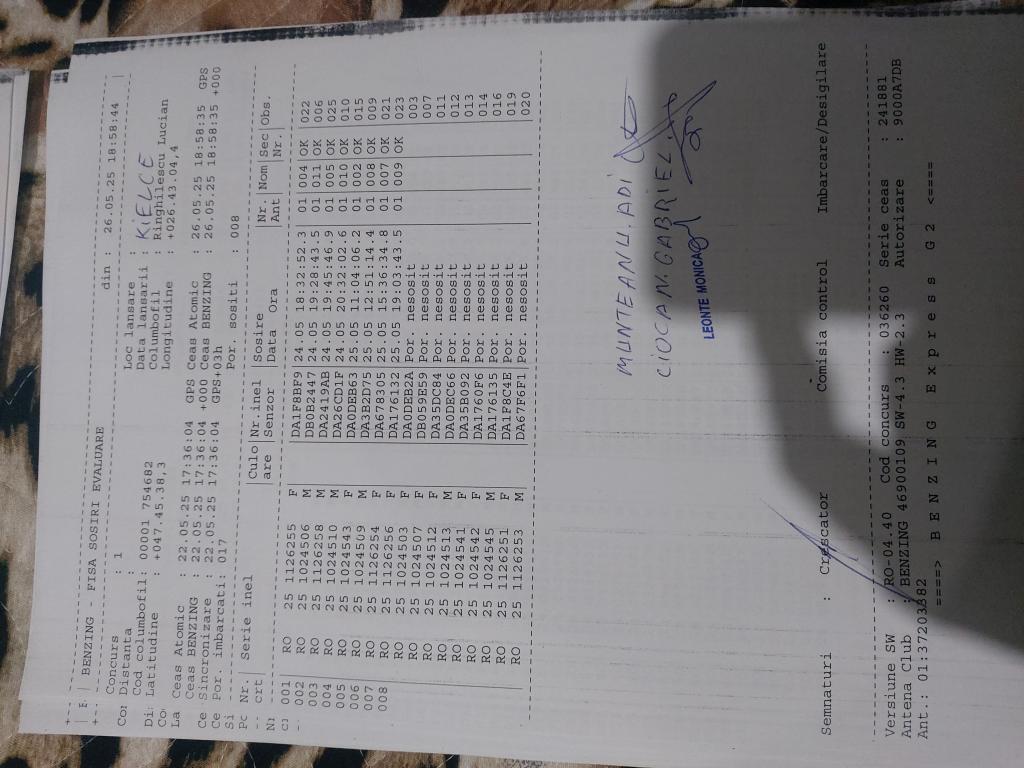 BENZING - FISA SOSIRI EVALUARE
din : 26.05.25 18:58:44
Concurs : 1 Loc lansare : KIELCE
Distanta : Data lansarii :
Cod columbofil: 00001 754682 Columbofil : Ringhilescu Lucian
Latitudine : +047.45.38,3 Longitudine : +026.43.04,4
Ceas Atomic : 22.05.25 17:36:04 GPS Ceas Atomic : 26.05.25 18:58:35 GPS
Ceas BENZING : 22.05.25 17:36:04 +000 Ceas BENZING : 26.05.25 18:58:35 +000
Sincronizare : 22.05.25 17:36:04 GPS+03h
Por. imbarcati: 017 Por. sositi : 008
Nr. Serie inel Culo Nr.inel Sosire Nr. Nom Sec Obs.
crt are Senzor Data Ora Ant Nr.
001 RO 25 1126255 F DA1F8BF9 24.05 18:32:52.3 01 004 OK 022
002 RO 25 1024506 M DB0B2447 24.05 19:28:43.5 01 011 OK 006
003 RO 25 1126258 M DA2419AB 24.05 19:45:46.9 01 005 OK 025
004 RO 25 1024510 M DA26CD1F 24.05 20:32:02.6 01 010 OK 010
005 RO 25 1024543 F DA0DEB63 25.05 11:04:06.2 01 002 OK 015
006 RO 25 1024509 M DA3B2D75 25.05 12:51:14.4 01 008 OK 009
007 RO 25 1126254 F DA678305 25.05 15:36:34.8 01 007 OK 021
008 RO 25 1126256 F DA176132 25.05 19:03:43.5 01 009 OK 023
RO 25 1024503 F DA0DEB2A Por. nesosit 003
RO 25 1024507 F DB059E59 Por. nesosit 007
RO 25 1024512 F DA35DC84 Por. nesosit 011
RO 25 1024513 M DA0DEC66 Por. nesosit 012
RO 25 1024541 F DA35B092 Por. nesosit 013
RO 25 1024542 F DA1760F6 Por. nesosit 014
RO 25 1024545 M DA176135 Por. nesosit 016
RO 25 1126251 F DA1F8C4E Por. nesosit 019
RO 25 1126253 M DA67F6F1 Por. nesosit 020
MUNTEANU. ADI
CIOCAN. GABRIEL
LEONTE MONICA
Semnaturi : Crescator Comisia control Imbarcare/Desigilare
Versiune SW : RO-04.40 Cod concurs : 036260 Serie ceas : 241881
Antena Club : BENZING 46900109 SW-4.3 HW-2.3 Autorizare : 9000A7DB
Ant.: 01:37203382
====> B E N Z I N G E x p r e s s G 2 <====